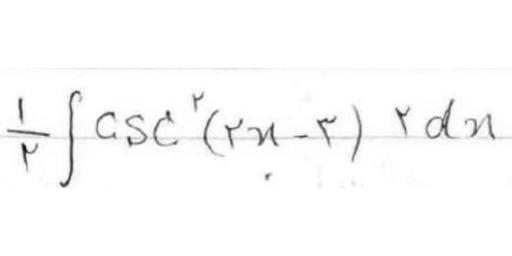 ۱/۲ ∫ csc^۲ (۲x - ۳) ۲ dx